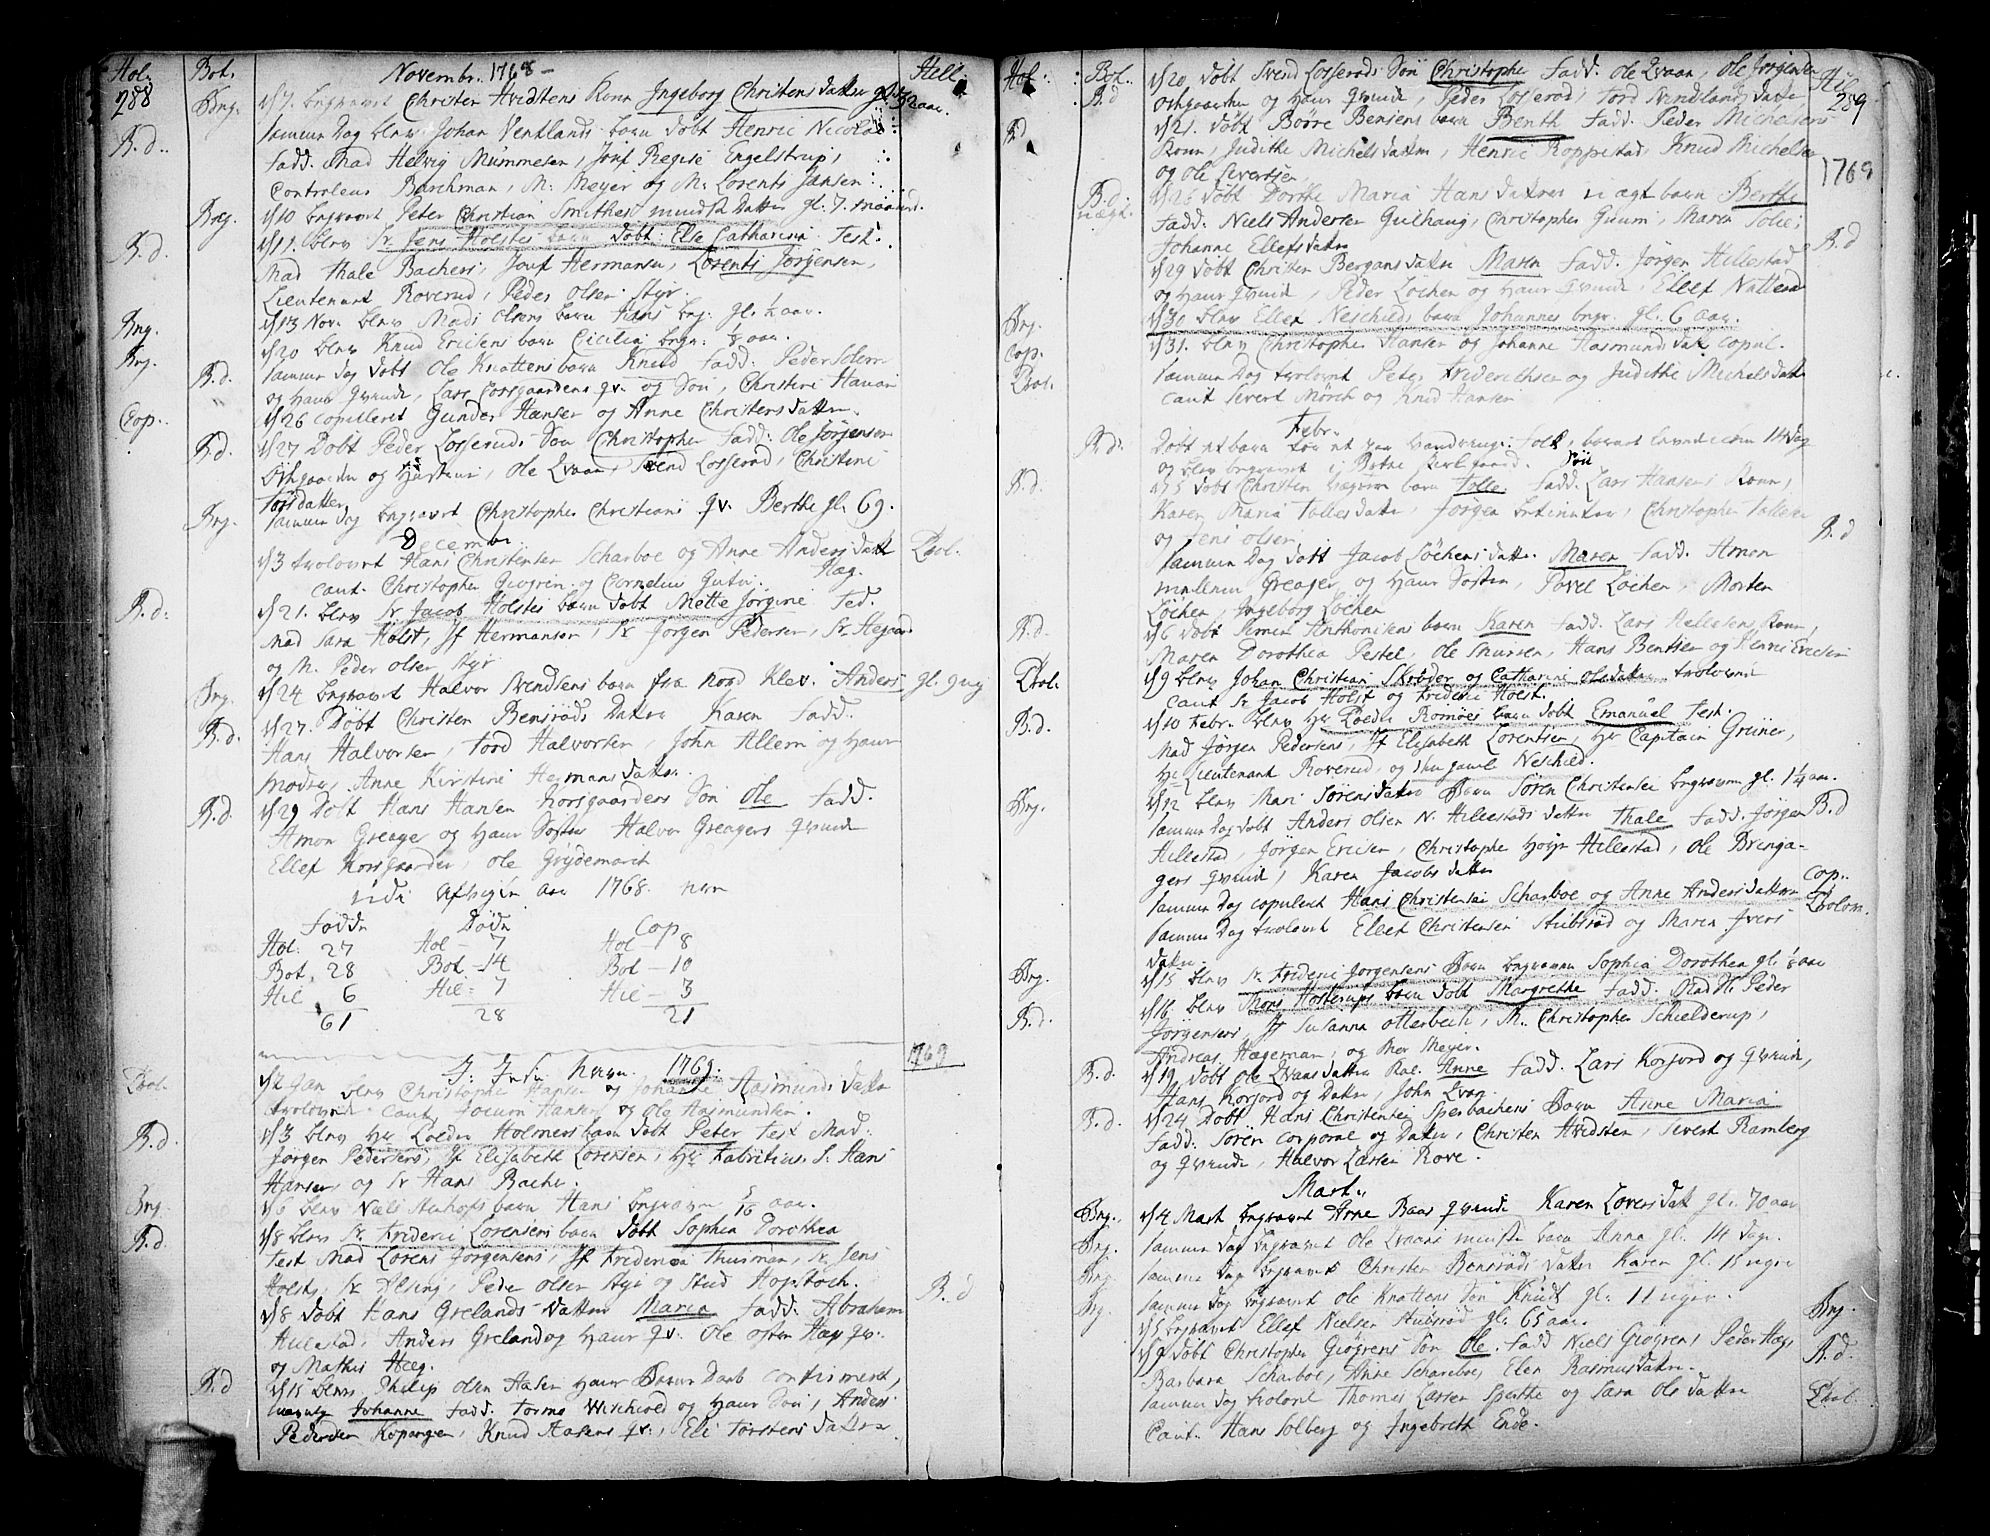 Hol: Bot. Novembr. 1768 – Hill
288
Bng. d/7. begravet Christen Hvidstens Kone Ingeborg Christens datter gl. 52 aar.
B.d. samme Dag blev Johan Ventlands barn döbt Henric Nicolai
fadd. Mad Helvig Mümmesen, Jomf Regise Engelstrup,
Controleur Barchman, M. Meyer og M. Lorents Jansen
Beg. d/10 begravet Peter Christian Smithes datter gl. 7. maaned.
B.d. d/11. blev Sr. Jens Holstes barn döbt Else Catharina Test.
Mad Thale Bachers, Jomf Hermansen, Lorents Jörgensen,
Lieutenant Roverud, Peder Olsen Styr.
Bng. d/13 Nov. blev Mads Olsens barn Hans beg. gl. ½ aar.
Beg. d/20 blev Knud Ericsens barn Cicilia begr. aar.
B.d. samme Dag döbt Ole Knattens barn Knud fadd. Peder Solem
og Hans qvinde, Lars Corsgaardens qv. og Sön, Christine
Cop. d/26 copulleret Gunder Hansen og Anne Christensdatter.
B.d. d/27 Döbt Peder Losserods Sön Christopher fadd: Ole Jörgensen
og Hustrue, Ole Qvaan, Svend Losserod, Christine
Torsdatter
Bng. samme Dag begravet Christopher Christians qv. Berthe gl. 69.
Decembr
d/3 trolovet Hans Christensen Scharboe og Anne Andersdatter Trol.
caut. Christopher Giogrein og Cornelius Hæg.
B.d. d/21. blev Sr Jacob Holstes barn döbt Mette Jörgine Test.
Mad Sara Holst, Jf Hermansen, Sr. Jörgen Pedersen, Sr. Hegaard
og M. Peder Olsen Styr
Bng. d/24 begravet Halvor Svendsens barn fra Nord Klev. Anders gl. 9 ug
B.d. d/27. Döbt Christen Bensröds Datter Karen fadd.
Hans Halvorsen, Tord Halvorsen, John Allem og Hans
Moder, Anne Kirstine Hermansdatter.
B.d. d/29 Döbt Hans Hansen Korsgaardens Sön Ole fadd.
Amon Greager og Hans Söster, Halvor Greagers qvinde
Ellef Korsgaarden, Ole Grydemaret
udi Afvigte Aar 1768. nem
Födde Döde Cop
Hol: 27 Hol – 7 Hol – 8
Bot. 28 Bot – 14 Bot – 10
Hil 6 Hil – 7 Hil – 3
61 28 21
J. Jesu Navn. 1769. 1769
Trol. d/2 Jan blev Christopher Hansen og Johanne Aasmunds datter
trolovede caut. Jocum Hansen og Ole Aasmundsen.
B.d. d/3 blev Hr Loeder Holmers barn döbt Peter Test Mad.
Jörgen Pedersens, Jf Elisabeth Lorensen, Hr Fabritius S. Hans
Hansen og Sr Hans Bacher.
Bng. d/6 blev Niels barn Hans begraven 5/16 aar.
B.d. d/8 blev Sr Frideric Lorensens barn döbt Sophia Dorothea
Test Mad Lorens Jörgensens, Jf Friderica Thuisman, Sr. Jens
Holst, Sr Peder Olsen Styr og Stud Hopstoch.
d/8 döbt Hans Grelands Datter Maria fadd. Abraham B.d
Hillestad, Anders Greland og Hans qv. Ole Ofsten Hæg qv.
og Mathis Hæg.
B.d d/15 blev Philip Olsen Aasen Hans Barns Daab confirmeret,
Johanne fadd. Tormo Wirchiold og Hans Sön, Anders
Pedersen Kopangen, Knud Aasens qv., Eli Torstens datter.
Hol: Bot. d/20 döbt Svend Losserods Sön Christopher fadd. Ole Qvaan, Ole Jörgensen Hil
B.d og Hans qvinde, Peder Losserod, Tord datter, 289
B.d d/21. döbt Börre Bensens barn Benth fadd. Peder Michelsens
Kone, Judithe Michelsdatter, Henric Roppestad, Knud Michelsen
og Ole Severtsen. 1769
B.d. uægt. d/26 döbt Dorthe Maria Hansdatters uægt barn Berthe
fadd. Niels Andersen Gulhaug, Christopher Guum, Maren Tolles
Johanne Ellefsdatter B.d
d/29 döbt Christen Bergans datter Maren fadd. Jörgen Hillestad
og Hans qvinde, Peder Löchen og Hans qvinde, Ellef Natteus
Bng. d/30 blev Ellef Neschilds barn Johannes begr. gl. 6 aar.
Cop. d/31. blev Christopher Hansen og Johanne Aasmunds datter copul.
Trol. samme Dag trolovet Peter Friderichsen og Judithe Michelsdatter
caut Severt Mörch og Knud Hansen
Febr.
B.d. Döbt et barn for et par folk, 14 Dag
og blev begravet i Botne Kirkegaard.
B.d. d/5 döbt Christen barn Tolle. fadd. Lars Hansens Kone,
Karen Maria Tollesdatter, Jörgen, Christopher Tollesen
og Jens Olsen. B.d
samme Dag döbt Jacob Löchens datter Maren fadd. Amon
Greager, og Hans Söster, Povel Löchen, Morten
Löchen, Ingeborg Löchen
B.d. d/6 döbt Anthonisens barn Karen fadd. Lars Kone,
Maren Dorothea Pestel, Ole, Hans Bentsen og Ericsen
Trol. d/9 blev Johan Christian Skrøder og Catharine Olsdatter trolovede
caut Sr Jacob Holst og Frideric Holst.
B.d. d/10 Febr. blev Hr Loeder Romöes barn döbt Emanuel Test.
Mad Jörgen Pedersens, Jf Elisabeth Lorentsen, Hr Capitain Grüner,
Hr Lieutenant Roverud, og Neschild.
Bng. d/12 blev Mari Sörensdatter Barn Sören Christensen begraven gl. 1¼ aar.
samme Dag döbt Anders Olsen N. Hillestads datter Thale fadd. Jörgen B.d
Hillestad, Jörgen Ericsen, Christopher Höyr Hillestad, Ole Bringa-
gers qvinde, Karen Jacobsdatter
samme Dag copuleret Hans Christensen Scharboe og Anne Andersdatter Cop.
samme Dag trolovet Ellef Christensen Stubsröd og Maren Ivers Trolov.
datter.
Bng. d/15 blev Sr. Frideric Jörgensens Barn begraven Sophia Dorothea gl. ⅛ aar
B.d. d/16. blev Mons Hosterups barn döbt Margrethe fadd. Mad H. Peder
Jörgensens, Jf Susanna Otterbech, M. Christopher Schielderup,
Andreas Hageman, og Mor Meyer.
B.d. d/19 döbt Ole Qvans datter Anne fadd. Lars Korsord og qvinde,
Hans Korsord og datter, John Qvan
B.d. d/24 Döbt Hans Christensen Sperbachens Barn Anne Maria
fadd. Sören Corporal og Datter, Christen Hvidsten, Severt Ramberg
og qvinde, Halvor Larsen Rove.
Mart.
Bng. d/4 Mart begravet Arne Baas qvinde Karen Loversdatter gl. 70 aar
Bng. samme Dag begravet Ole Qvans mindste barn Anne gl. 14 Dage.
Bng. samme Dag begravet Christen Bensröds datter Karen gl. 11 uger
Bng. samme Dag begravet Ole Knattens Sön Knud gl. 11 uger.
d/5 begravet Ellef Nielsen Stubsröd gl. 65 aar. Bng.
d/9 döbt Christopher Giögrens Sön Ole. fadd Niels Giögren, Peder Hæg, B.d.
Barbara Scharboe, Anne Scharboe, Elen Rasmusdatter.
samme Dag trolovet Thomas Larsen Sperthe og Sara Olsdatter Trol.
Caut. Hans Solberg og Ingebreth Ende.